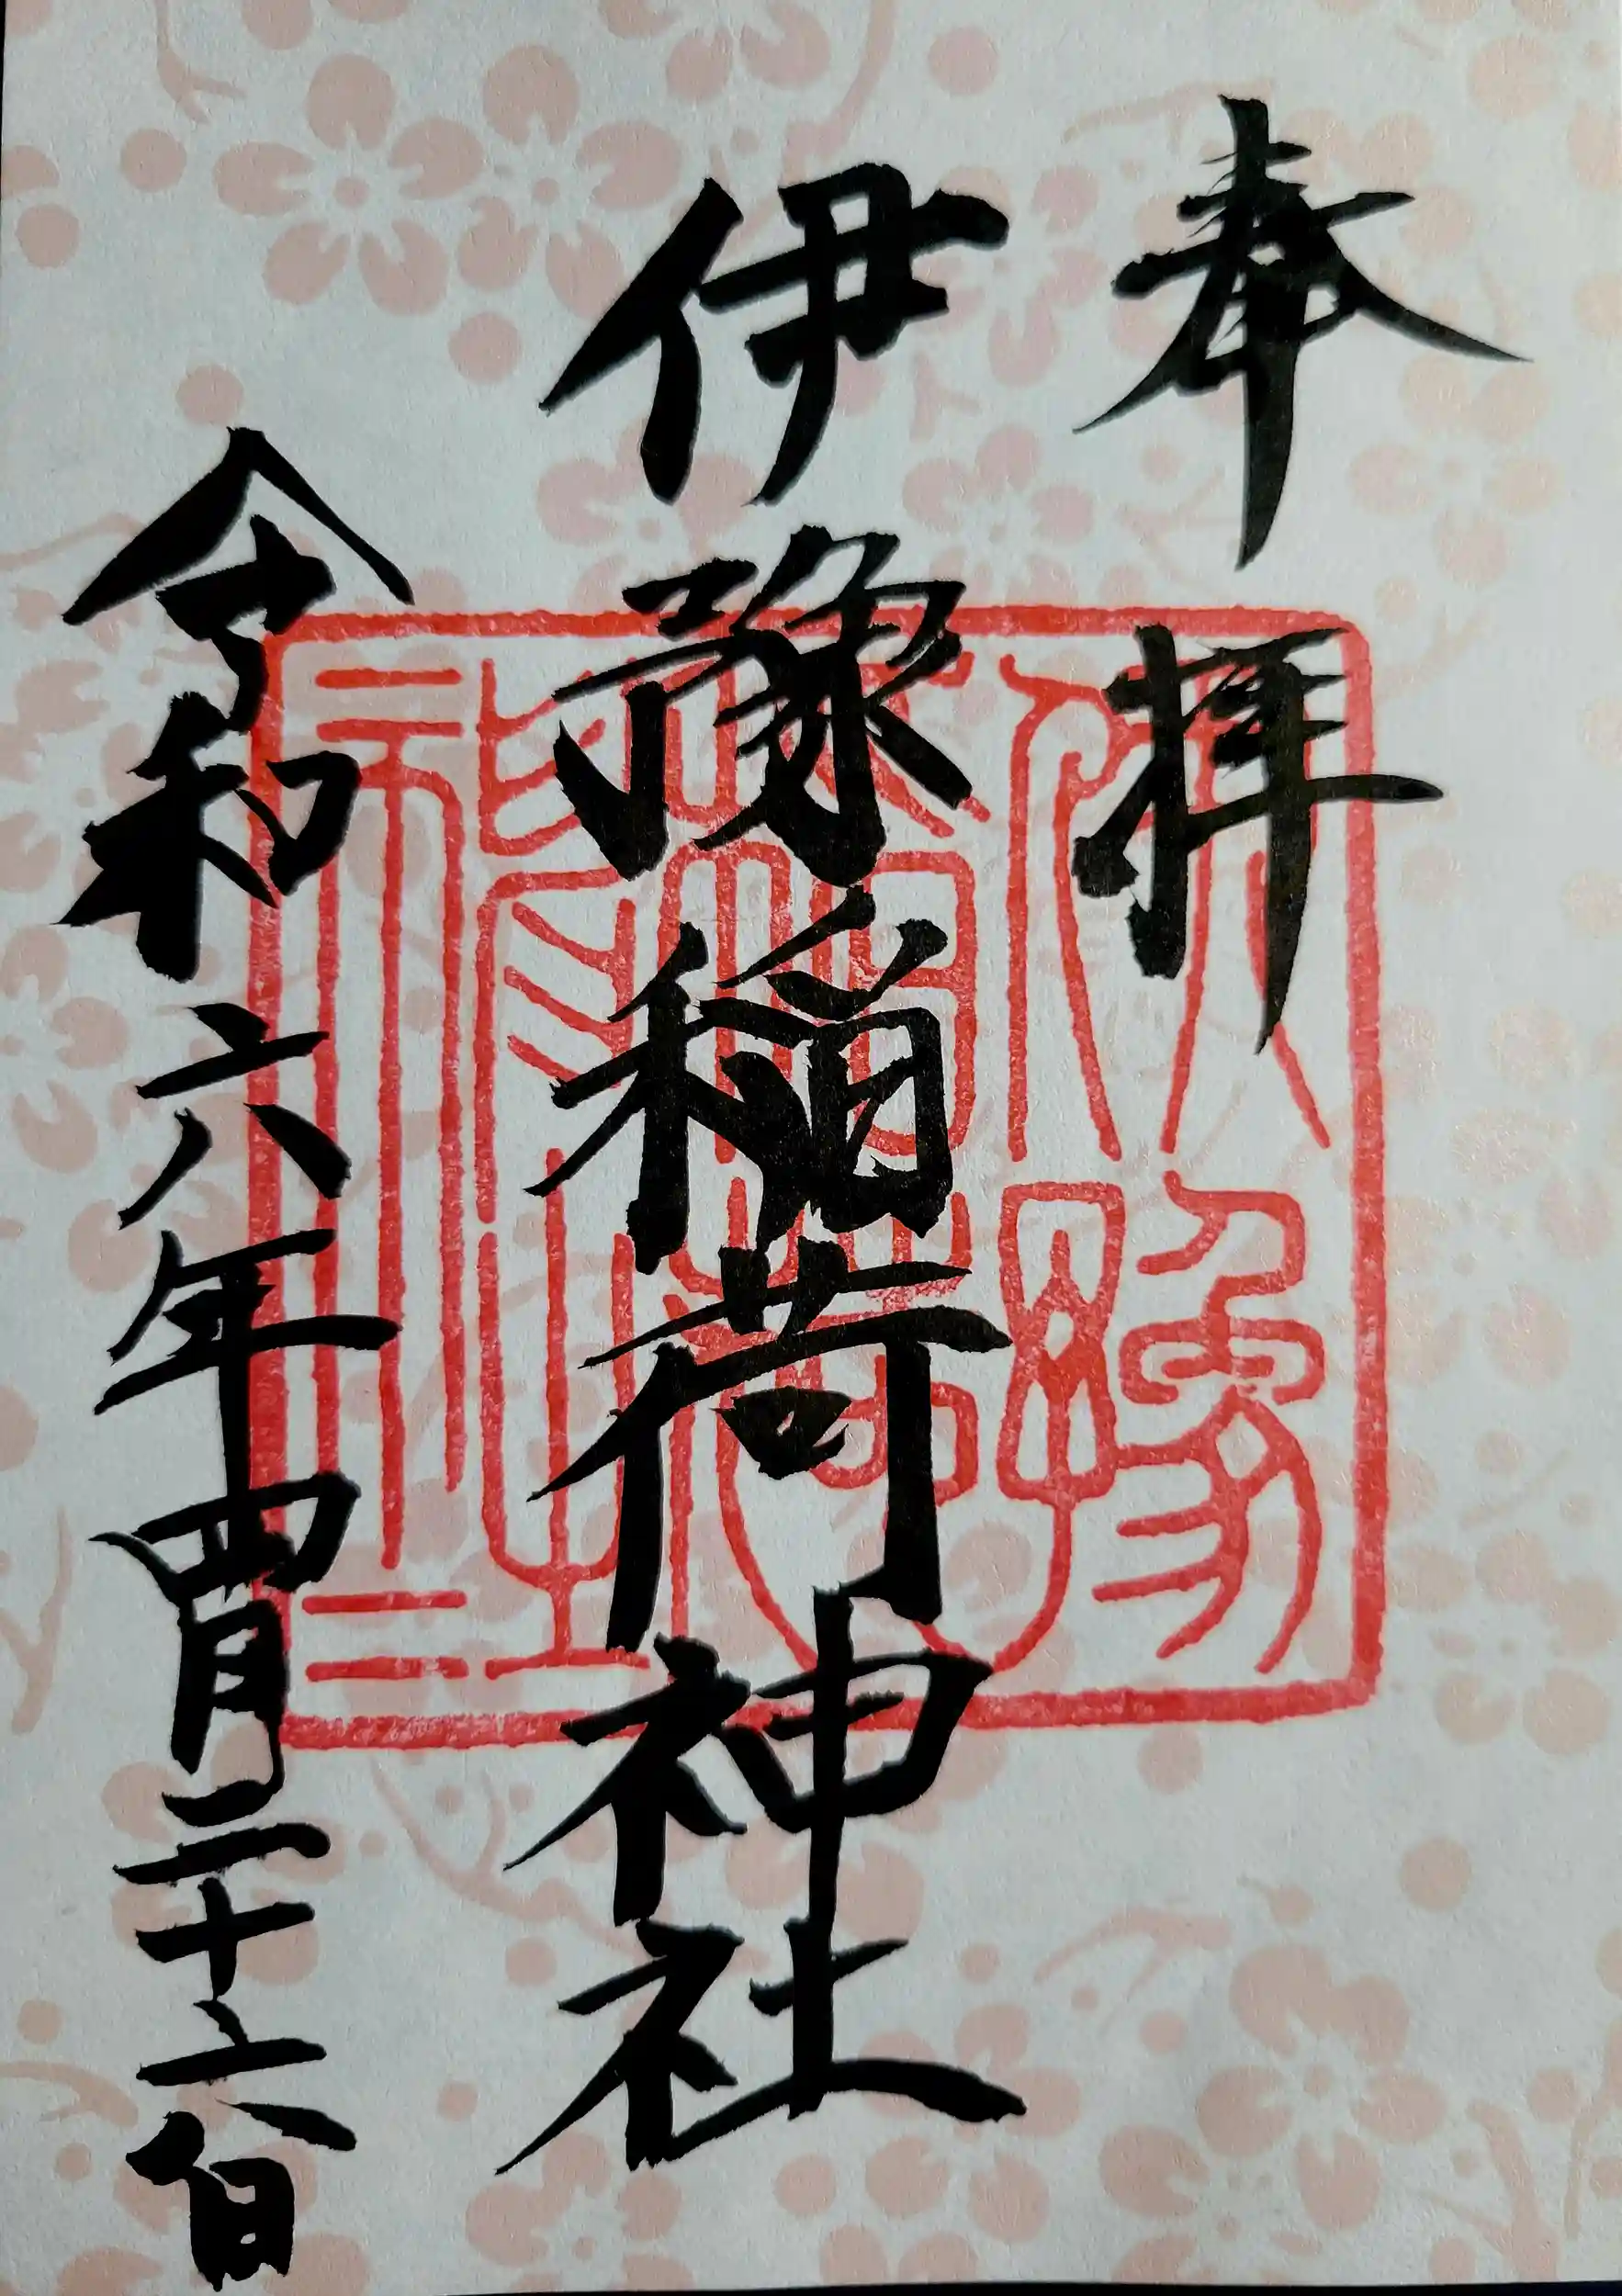 奉拝
伊豫稲荷神社
令和六年四月二十六日
伊豫
稲荷
神社